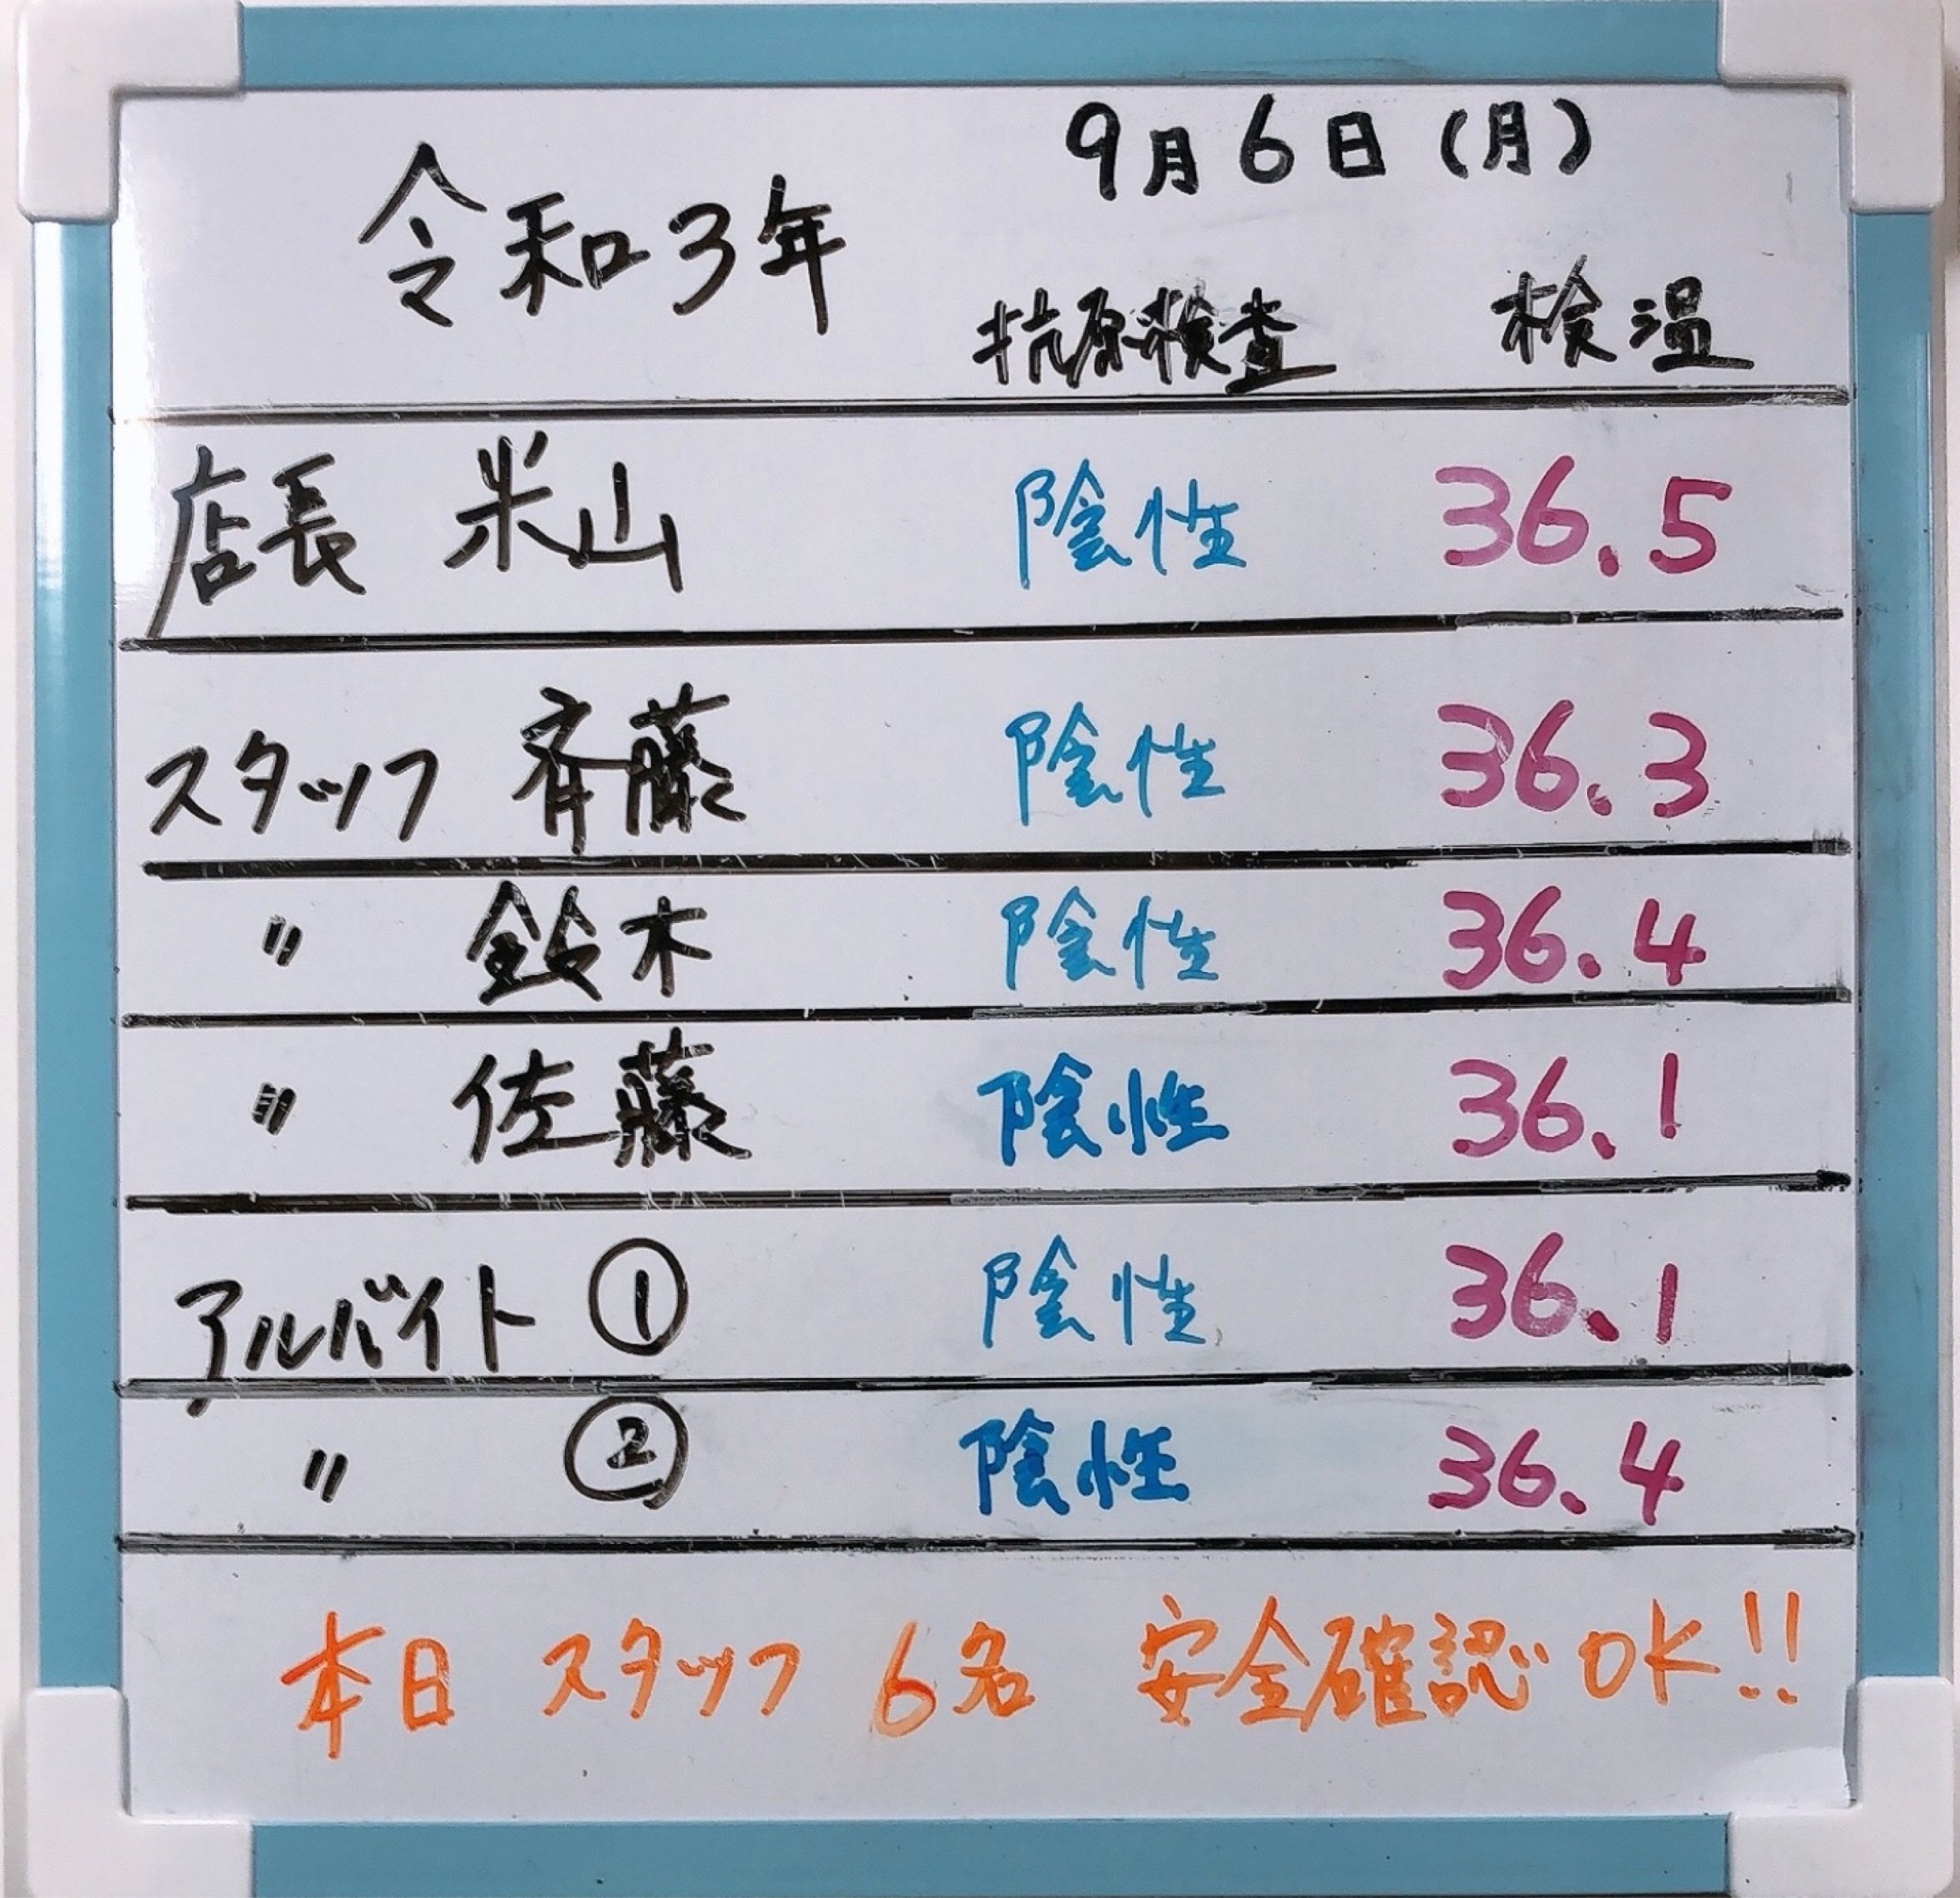 9月6日(月)
令和3年
抗原検査 検温
店長 米山 陰性 36.5
スタッフ 斉藤 陰性 36.3
〃 鈴木 陰性 36.4
〃 佐藤 陰性 36.1
アルバイト ① 陰性 36.1
〃 ② 陰性 36.4
本日 スタッフ 6名 安全確認OK!!